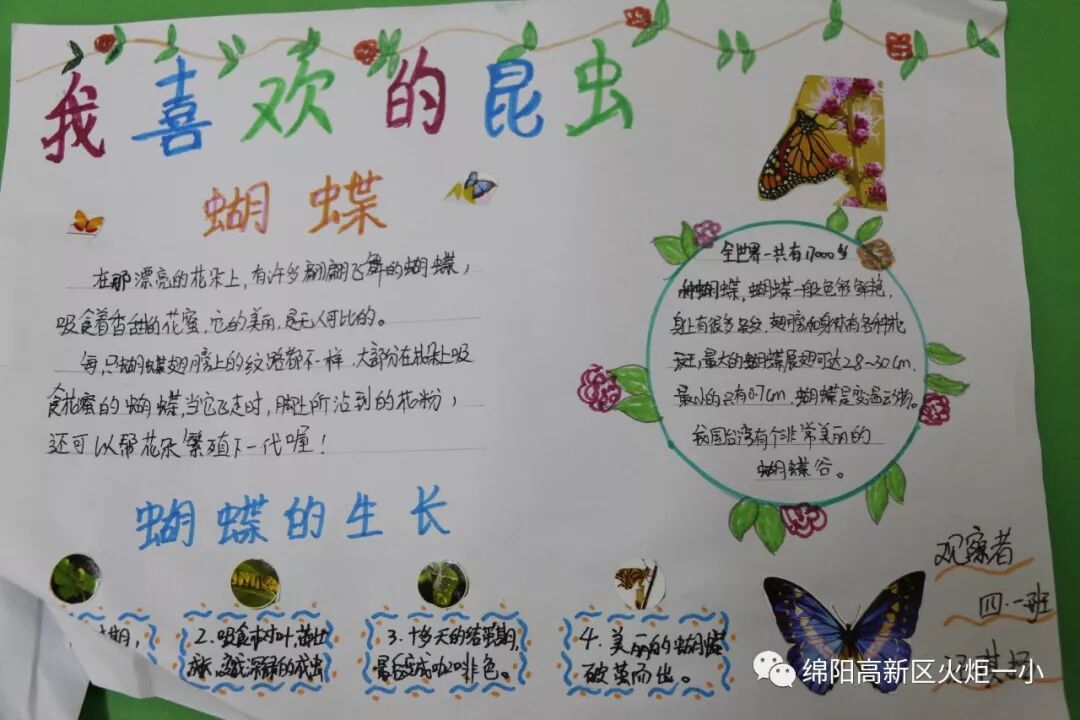 我喜欢的昆虫
蝴蝶
在那漂亮的花朵上,有许多翩翩飞舞的蝴蝶,
吸食着香甜的花蜜,它的美丽,是无人可比的。
每只蝴蝶翅膀上的纹路都不一样,大部分在花朵上吸
食花蜜的蝴蝶,当它飞走时,脚上所沾到的花粉,
还可以帮花朵繁殖下一代喔!
全世界一共有17000多
种蝴蝶,蝴蝶一般色彩鲜艳,
身上有很多条纹,翅膀和身体有各种花
斑,最大的蝴蝶展翅可达28-30cm,
最小的只有0.7cm,蝴蝶是变温动物。
我国台湾有个非常美丽的
蝴蝶谷。
蝴蝶的生长
期,
2.吸食树叶
成虫
3.十多天的结蛹期,
最后变成咖啡色。
4.美丽的蝴蝶
破茧而出。
观察者
四.一班
绵阳高新区火炬一小